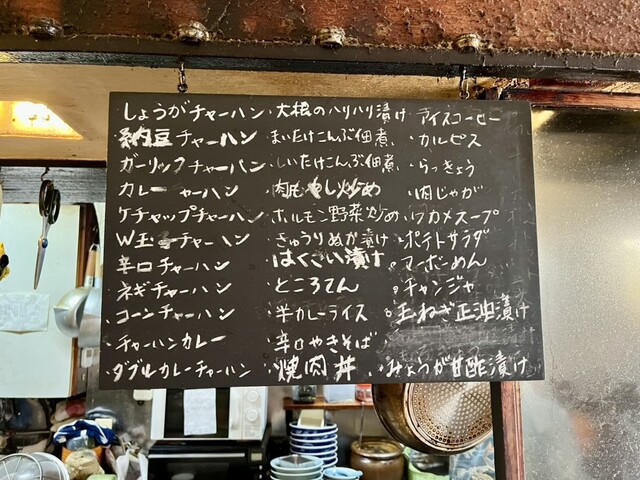 ・しょうがチャーハン ・大根のハリハリ漬け ・アイスコーヒー
・納豆チャーハン ・まいたけこんぶ佃煮 ・カルピス
・ガーリックチャーハン ・しいたけこんぶ佃煮 ・らっきょう
・カレーチャーハン ・肉もやし炒め ・肉じゃが
・ケチャップチャーハン ・ホルモン野菜炒め ・ワカメスープ
・W玉子チャーハン ・きゅうりぬか漬け ・ポテトサラダ
・辛口チャーハン ・はくさい漬け ・マーボーめん
・ネギチャーハン ・ところてん ・チャンジャ
・コーンチャーハン ・半カレーライス ・玉ねぎ正油漬け
・チャーハンカレー ・辛口やきそば
・ダブルカレーチャーハン ・焼肉丼 ・みょうが甘酢漬け